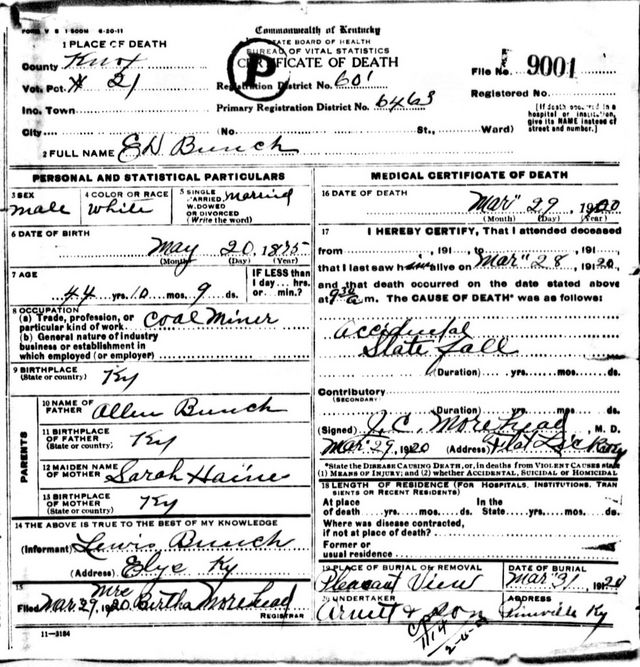 FORM V S 1 500M 6-20-11
Commonwealth of Kentucky
STATE BOARD OF HEALTH
BUREAU OF VITAL STATISTICS
CERTIFICATE OF DEATH
P
1 PLACE OF DEATH
County Knox
Vot. Pct. # 21
Registration District No. 601
File No. 9001
Inc. Town
Primary Registration District No. 6463
Registered No.
City (No. St., Ward)
[If death occurred in a hospital or institution, give its NAME instead of street and number.]
2 FULL NAME Ed Bunch
PERSONAL AND STATISTICAL PARTICULARS
3 SEX male
4 COLOR OR RACE White
5 SINGLE, MARRIED, WIDOWED OR DIVORCED (Write the word) married
6 DATE OF BIRTH
May 20, 1875
(Month) (Day) (Year)
7 AGE
44 yrs. 10 mos. 9 ds.
IF LESS than 1 day... hrs. or... min.?
8 OCCUPATION
(a) Trade, profession, or particular kind of work. Coal Miner
(b) General nature of industry business or establishment in which employed (or employer)
9 BIRTHPLACE (State or country) Ky
PARENTS
10 NAME OF FATHER Allen Bunch
11 BIRTHPLACE OF FATHER (State or country) Ky
12 MAIDEN NAME OF MOTHER Sarah Haine
13 BIRTHPLACE OF MOTHER (State or country) Ky
14 THE ABOVE IS TRUE TO THE BEST OF MY KNOWLEDGE
(Informant) Lewis Bunch
(Address) Elys Ky
15
Filed Mar. 29, 1920 Mrs Bertha Morehead
REGISTRAR
11-3184
MEDICAL CERTIFICATE OF DEATH
16 DATE OF DEATH
Mar 29, 1920
(Month) (Day) (Year)
17 I HEREBY CERTIFY, That I attended deceased
from , 191 , to , 191 ,
that I last saw him alive on Mar 28, 1920,
and that death occurred on the date stated above
at 9 30 a m. The CAUSE OF DEATH* was as follows:
accidental
Slate fall
(Duration) yrs. mos. ds.
Contributory
(SECONDARY)
(Duration) yrs. mos. ds.
(Signed) J. C. Morehead, M. D.
Mar 29, 1920 (Address) Flat Lick Ky
*State the DISEASE CAUSING DEATH, or, in deaths from VIOLENT CAUSES state (1) MEANS OF INJURY; and (2) whether ACCIDENTAL, SUICIDAL or HOMICIDAL
18 LENGTH OF RESIDENCE (FOR HOSPITALS, INSTITUTIONS, TRANSIENTS OR RECENT RESIDENTS)
At place of death yrs. mos. ds. In the State yrs. mos. ds.
Where was disease contracted, if not at place of death?
Former or usual residence
19 PLACE OF BURIAL OR REMOVAL
Pleasant View
DATE OF BURIAL
Mar 31, 1920
20 UNDERTAKER
Arnett & Son
ADDRESS
Pineville Ky